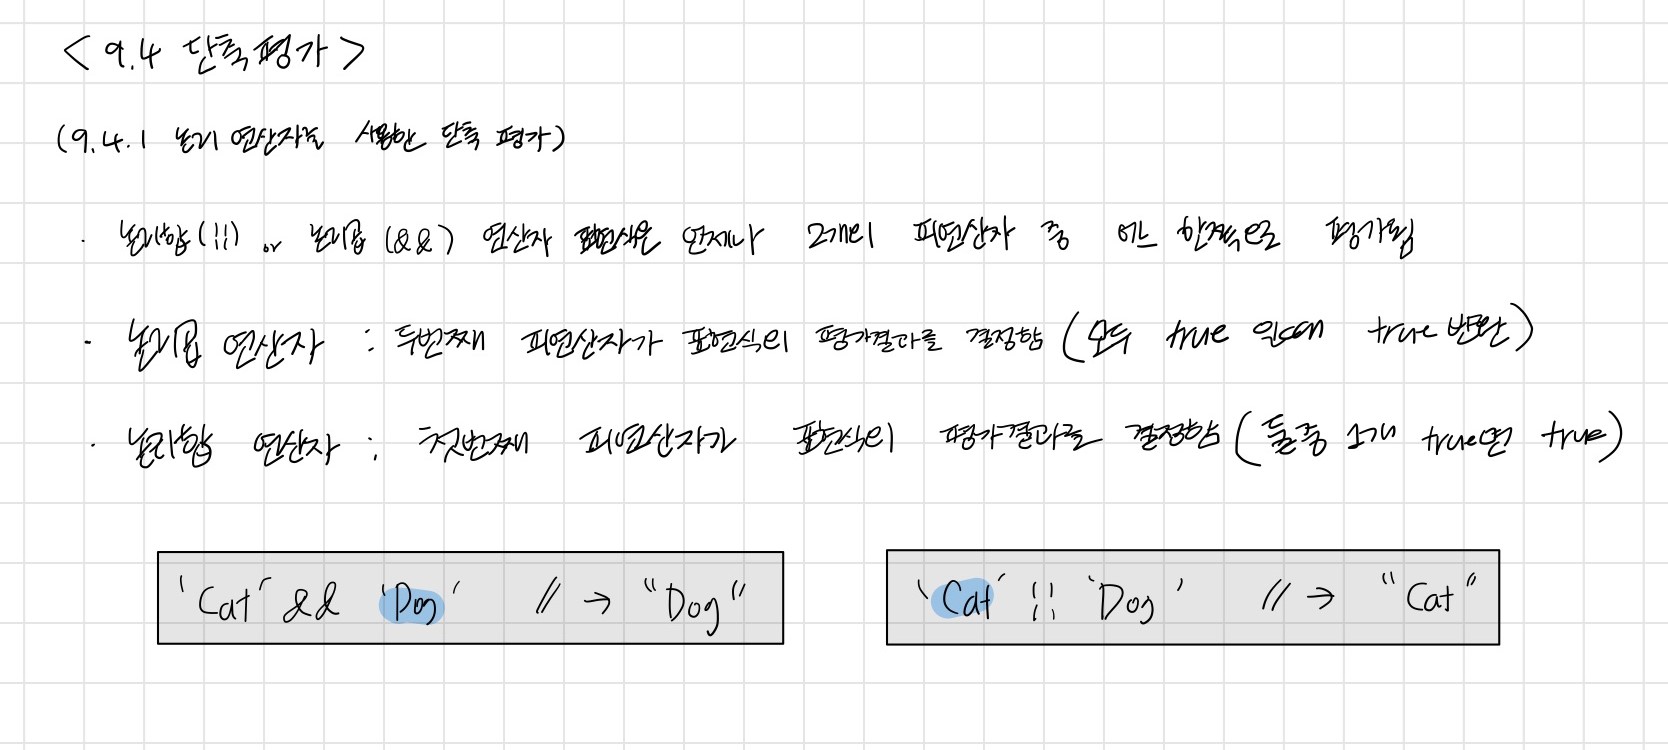 < 9.4 단축평가 >
(9.4.1 논리 연산자를 사용한 단축 평가)
· 논리합(||) or 논리곱(&&) 연산자 표현식은 언제나 2개의 피연산자 중 어느 한쪽으로 평가됨
· 논리곱 연산자 : 두번째 피연산자가 표현식의 평가결과를 결정함 (모두 true 일때 true 반환)
· 논리합 연산자 : 첫번째 피연산자가 표현식의 평가결과를 결정함 (둘중 1개 true면 true)
'Cat' && 'Dog' // → "Dog" 'Cat' || 'Dog' // → "Cat"